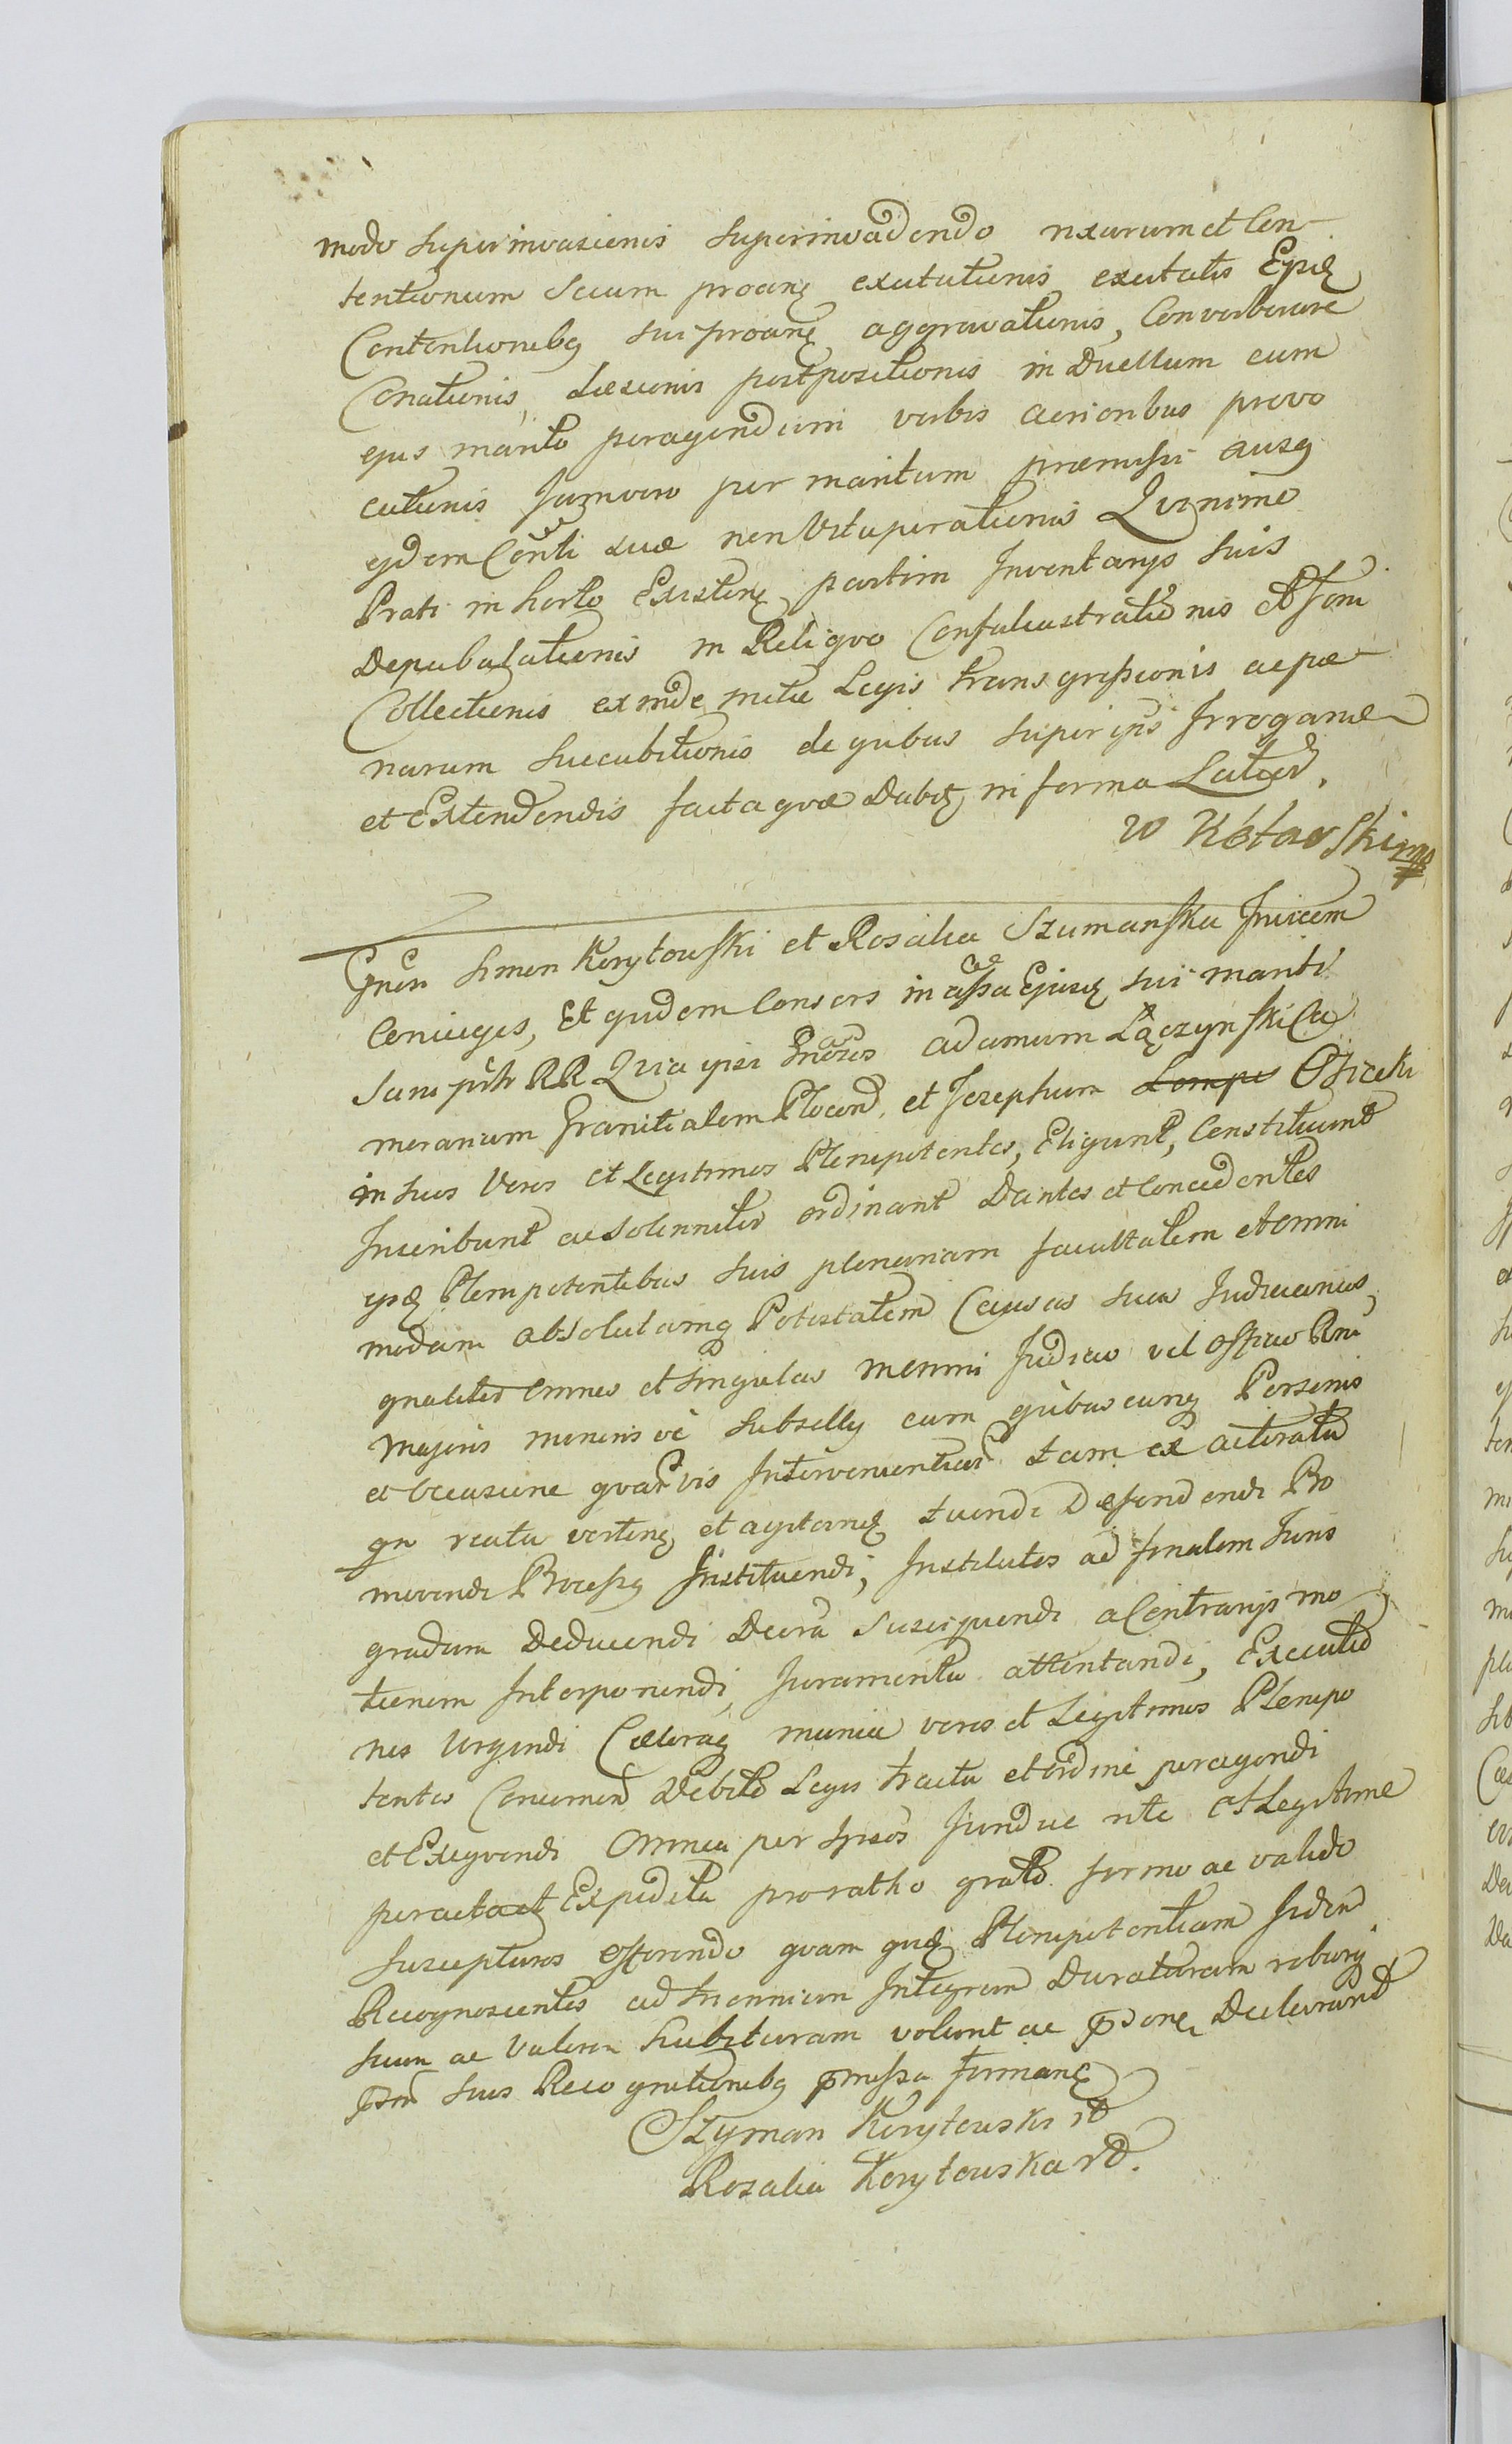 modo superinvasionis superinvadendo rixarum et Con
tentionum secum proanę excitationis excitatis Ejusq
Contentionibq sui proanę aggravationis, Converberare
Conationis, Læsionis postpositionis in Duellum cum
ejus marito peragendum verbis acrioribus provo
cationis Jamvero per maritum præmissi ausq
ejdem Conti suæ non Vituperationis Quinimo
Prati in horto Existenę partim Inventarys suis
Depabulationis in Reliquo Confalcastrationis et Foeni
Collectionis exinde mitæ Legis transgressionis ac pæ
narum succubitionis de quibus super ipsis Irrogame
et Extendendis facta quæ Dabit, in forma Latiori.
W Kótarski mp
Gnosi Simon Korytowski et Rosalia Szumanska Invicem
Coniuges, Et quidem Consors in assa Ejusdę sui mariti
Sani pntr RR Quia ipsi Gnosos Adamum Łączynski Ca
merarium Granitialem Plocen. et Josephum Lempi Osiecki
in suos Veros et Legitimos Plenipotentes, Eligunt, Constituunt
Inscribunt ac solenniter ordinant Dantes et Concedentes
ipsq Plenipotentibus suis plenariam facultatem et omni
modam absolutamq Potestatem Causas suas Judiciarias,
gnaliter omnes et singulas in omni Judicio vel Officio Rni
Majoris minoris ve subselly cum quibuscunq Personis
et occasione quarvis Intervenientium tam ex actoratu
qu reatu verten, et agitanę tuendi Defendendi Pro
movendi Processq Instituendi, Institutos ad finalem Juris
gradum Deducendi Decreta Suscipiendi a Contrarys mo
tionem Interponendi, Juramenta attentandi, Executio
nes Urgendi Cæteraq munia veros et Legitimos Plenipo
tentes Concernen Debito Legis tractu et ordine peragendi
et Exequendi Omnia per Ipsos Jundue rite et Legitime
peracta et Expedita pro ratho grato firmo ac valido
suscepturos offerendo quam quidę Plenipotentiam Iidem
Recognoscentes ad triennium Integrum Duraturam roburq
suum ac Valorem habituram volunt ac pdone Declarant
psm suis Recognitionibq pmissa firmanę
Szyman Korytowski rd
Rozalia Korytowska rd.